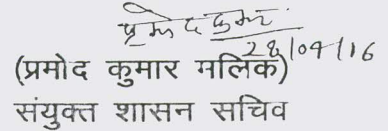 प्रमोद कुमार
28/04/16
(प्रमोद कुमार मलिक)
संयुक्त शासन सचिव